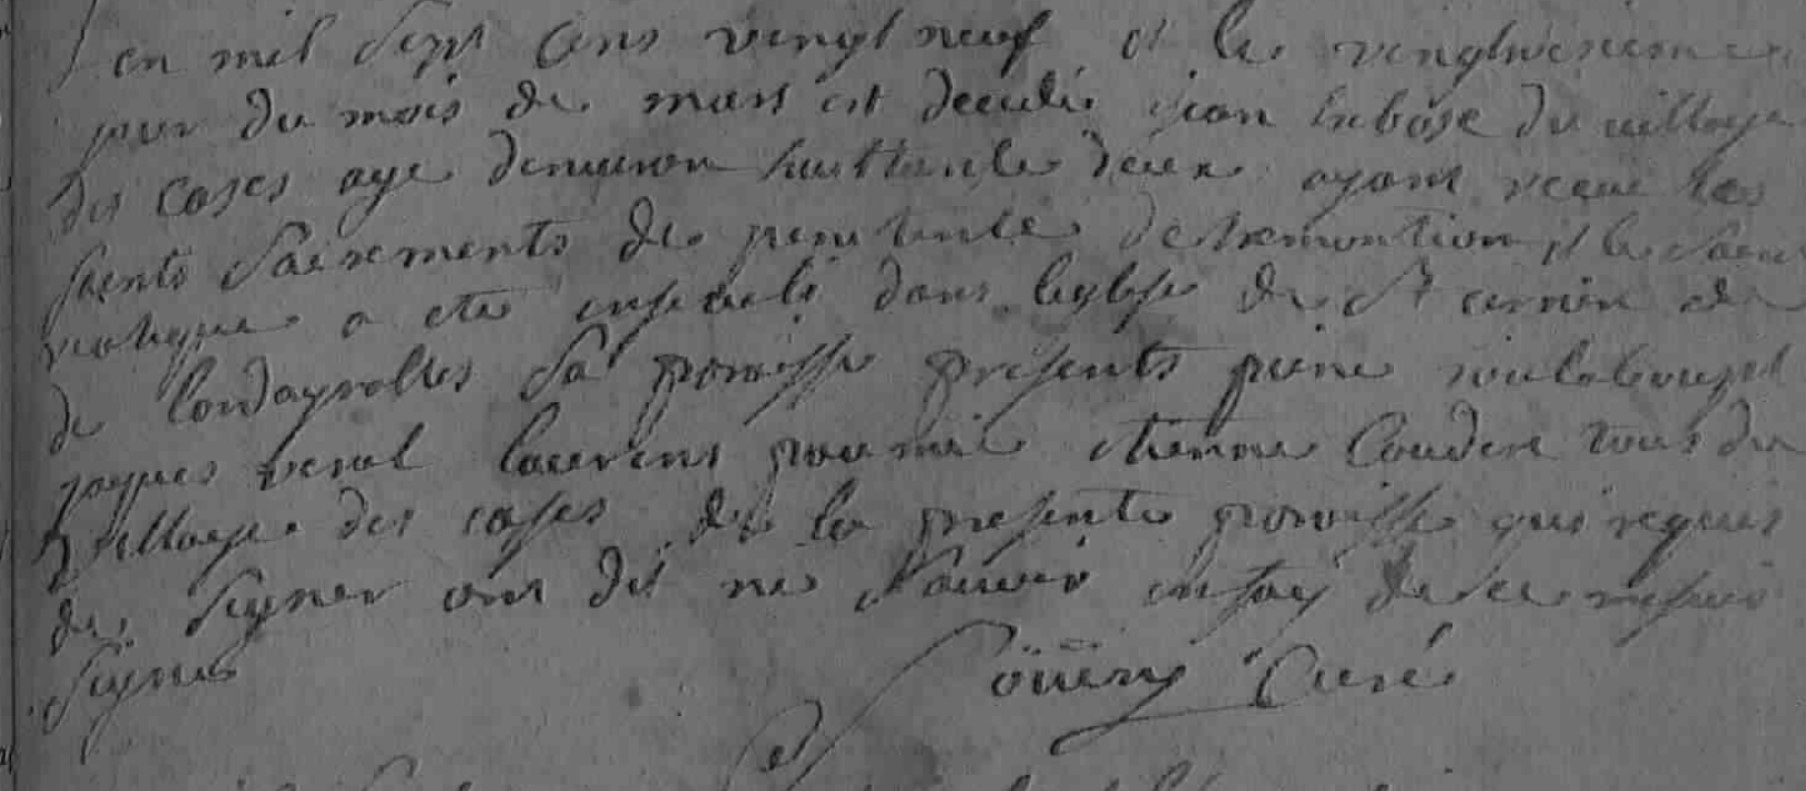 en mil Sept Cens vingt neuf et le vingtuniesme
jour du mois de mars est decedé jean labose du village
des cases age denuiron huittante deux ayant receu les
saints sacrements de penitence et le saint
viatique a ete enseveli dans leglise de St cernin de
de Coudayrolles sa paroisse presents pierre
jaques laurens etienne Couderc tous du
village des cases de la presente paroisse qui requis
de signer ont dit ne sauoir en foy de ce me suis
signe
Curé